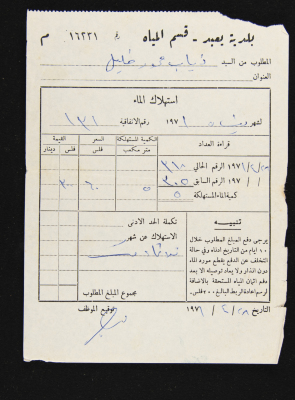 بلدية يعبد - قسم المياه
١٦٢٢١ م
المطلوب من السيد ذياب محمد خليل
العنوان
استهلاك الماء
لشهر ١٩٧١ رقم الاتفاقية ١٣١
قراءة العداد
الكمية المستهلكة متر مكعب
السعر فلس
القيمة فلس دينار
١٩٧١/٢/٢٨ الرقم الحالي ٣١٠
١٩٧ / / الرقم السابق ٣٠٥
كمية الماء المستهلكة ٥
٥ ٦٠ ٣٠٠
تنبيه
يرجى دفع المبلغ المطلوب خلال
١٠ ايام من التاريخ ادناه وفي حالة
التخلف عن الدفع يقطع مورد الماء
دون انذار ولا يعاد توصيله الا بعد
دفع اثمان المياه المستحقة بالاضافة
لرسم اعادة الربط البالغ ٢٠٠ فلس.
تكملة الحد الادنى
الاستهلاك عن شهر
مجموع المبلغ المطلوب
التاريخ ١٩٧١/٢/٢٨
توقيع الموظف